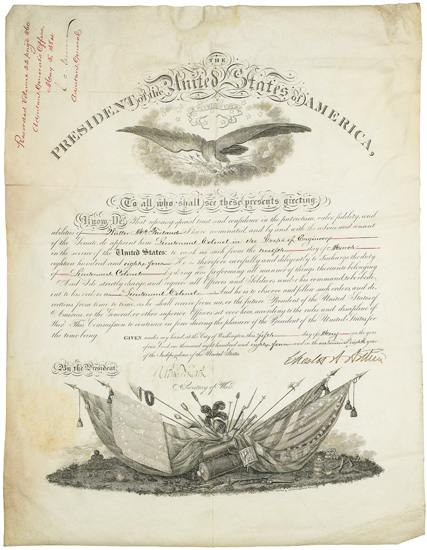 Recorded Volume 22 page 260
Adjutant General's Office,
May 5, 1884
Adjutant General.
THE
PRESIDENT of the United States of AMERICA,
To all who shall see these presents greeting:
Know Ye, That reposing special trust and confidence in the patriotism, valor, fidelity, and
abilities of Walter McFarland I have nominated, and by and with the advice and consent
of the Senate, do appoint him Lieutenant Colonel in the Corps of Engineers
in the service of the United States: to rank as such from the day of March
eighteen hundred and eighty four. He is therefore carefully and diligently to discharge the duty
of Lieutenant Colonel by doing and performing all manner of things thereunto belonging.
And I do strictly charge and require all Officers and Soldiers under his command to be obedi-
ent to his orders as Lieutenant Colonel. And he is to observe and follow such orders, and di-
rections from time to time, as he shall receive from me, or the future President of the United States of
America, or the General, or other superior Officers set over him, according to the rules and discipline of
War. This Commission to continue in force during the pleasure of the President of the United States, for
the time being.
GIVEN under my hand, at the City of Washington, this fifth day of May in the year
of our Lord one thousand eight hundred and eighty four and in the one hundred and eighth year
of the Independence of the United States.
By the President:
Chester A. Arthur
Secretary of War.